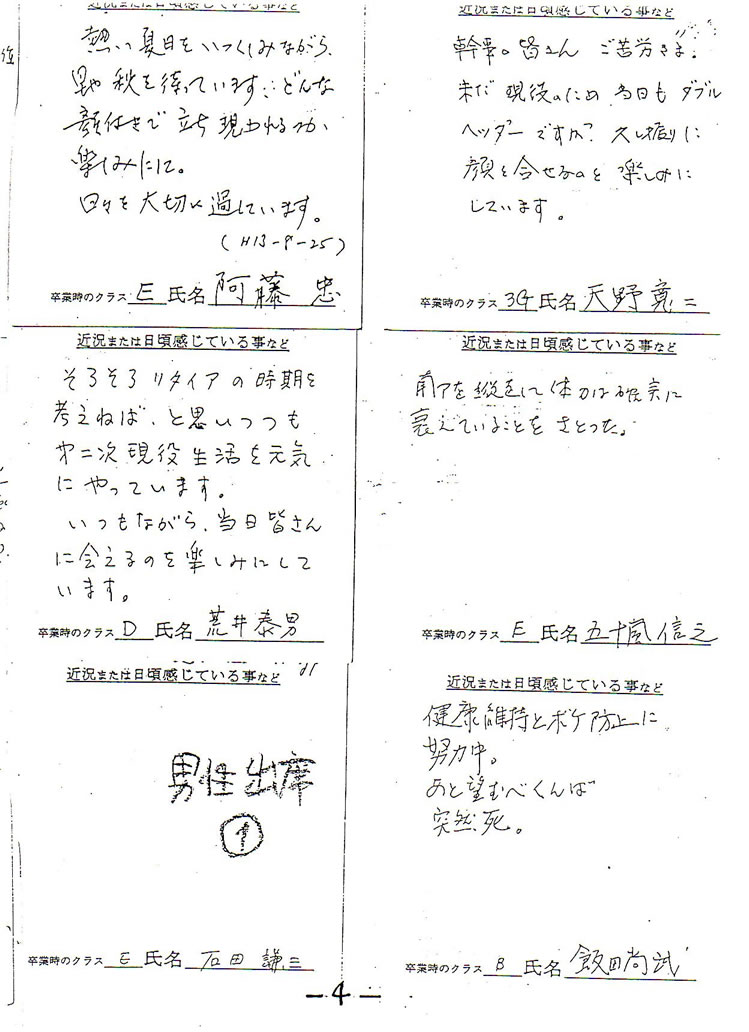 近況または日頃感じている事など
熱い夏日をいつくしみながら、
秋を待っています…どんな
顔付きで立ち現われるのか、
楽しみに。
日々を大切に過しています。
(H13-9-25)
卒業時のクラス E 氏名 阿藤 忠
近況または日頃感じている事など
幹事の皆さん ご苦労さま。
未だ 現役のため 当日も ダブル
ヘッダーですか? 久し振りに
顔を合せるのを 楽しみに
しています。
卒業時のクラス 3G 氏名 天野 寛二
近況または日頃感じている事など
そろそろリタイアの時期を
考えねば、と思いつつも
第二次現役生活を元気
にやっています。
いつもながら、当日皆さん
に会えるのを楽しみにして
います。
卒業時のクラス D 氏名 荒井泰男
近況または日頃感じている事など
南アを縦走して体力は確実に
衰えていることをさとった。
卒業時のクラス E 氏名 五十嵐信之
近況または日頃感じている事など
男性出席
①
卒業時のクラス E 氏名 石田 謙三
近況または日頃感じている事など
健康維持とボケ防止に
努力中。
あと望むべくんば
突然死。
卒業時のクラス B 氏名 飯田尚武
－4－